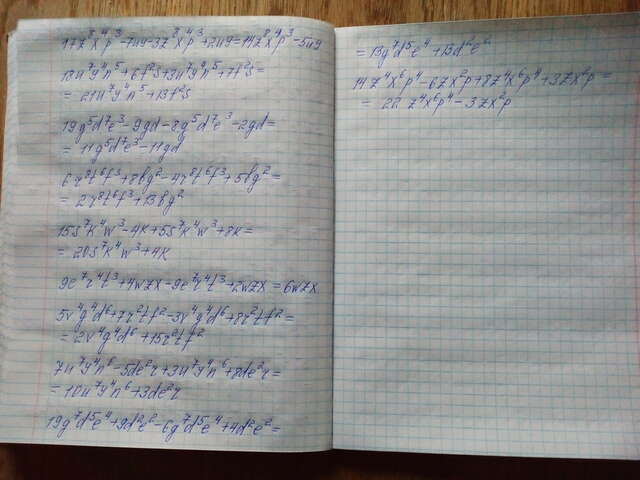 17z⁸x⁴p³-7uy-3z⁸x⁴p³+2uy=14z⁸x⁴p³-5uy
18u⁷y⁴n⁵+6f²s+3u⁷y⁴n⁵+7f²s=
=21u⁷y⁴n⁵+13f²s
19g⁵d⁷e³-9gd-8g⁵d⁷e³-2gd=
=11g⁵d⁷e³-11gd
6r⁸t⁶f³+8bg²-4r⁸t⁶f³+5bg²=
=2r⁸t⁶f³+13bg²
15s⁷k⁴w³-4k+5s⁷k⁴w³+8k=
=20s⁷k⁴w³+4k
9e⁷r⁴t³+4wzx-9e⁷r⁴t³+2wzx=6wzx
5v⁴g⁴d⁶+7r²tf²-3v⁴g⁴d⁶+8r²tf²=
=2v⁴g⁴d⁶+15r²tf²
7u⁷y⁴n⁶-5de²r+3u⁷y⁴n⁶+8de²r=
=10u⁷y⁴n⁶+3de²r
19g⁷d⁵e⁴+9d²e²-6g⁷d⁵e⁴+4d²e²=
=13g⁷d⁵e⁴+13d²e²
14z⁴x⁶p⁴-6zx²p+8z⁴x⁶p⁴+3zx²p=
=22z⁴x⁶p⁴-3zx²p